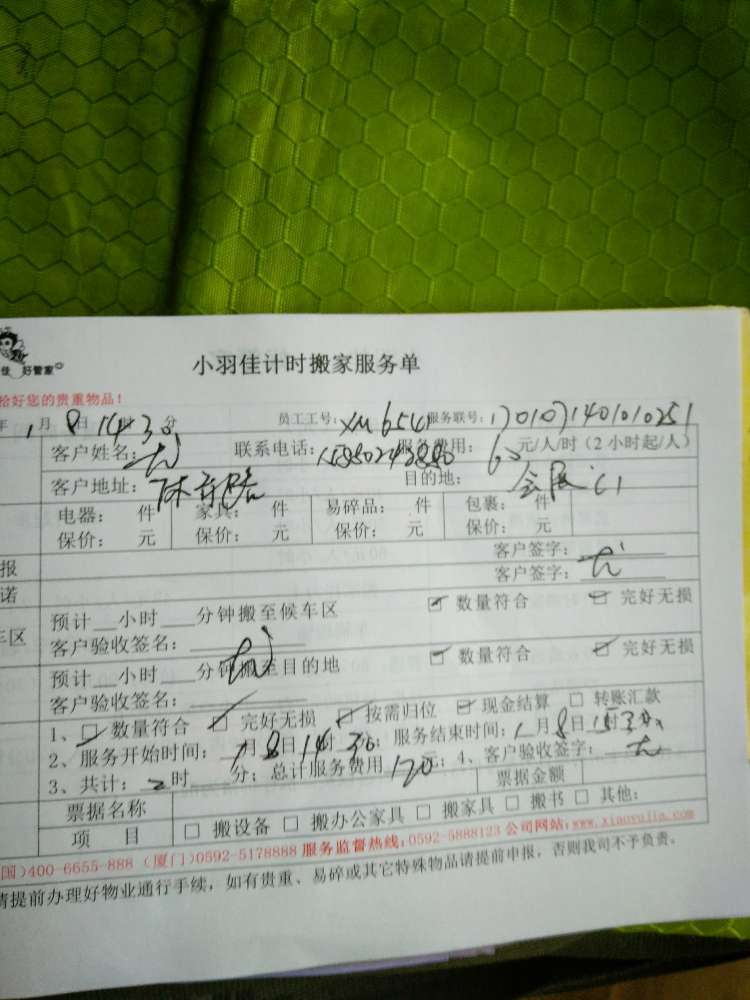 佳 好管家
小羽佳计时搬家服务单
恰好您的贵重物品！
年 1 月 8 日 14 时 30 分 员工工号：XM654 服务联号：1701071401010251
客户姓名： 联系电话： 服务费用：60 元/人/时（2小时起/人）
客户地址： 目的地：会展
电器： 件 家具： 件 易碎品： 件 包裹： 件
保价： 元 保价： 元 保价： 元 保价： 元
报 客户签字：
诺 客户签字：
预计 小时 分钟搬至候车区 数量符合 完好无损
车区 客户验收签名：
预计 小时 分钟搬至目的地 数量符合 完好无损
客户验收签名：
1、 数量符合 完好无损 按需归位 现金结算 转账汇款
2、服务开始时间：1月8日14时30；服务结束时间：1月8日
3、共计：2时 分；总计服务费用 120 元；4、客户验收签字：
票据名称 票据金额
项 目 搬设备 搬办公家具 搬家具 搬书 其他：
国)400-6655-888 (厦门)0592-5178888 服务监督热线:0592-5888123 公司网站:www.xiaoyujia.com
请提前办理好物业通行手续，如有贵重、易碎或其它特殊物品请提前申报，否则我司不予负责。